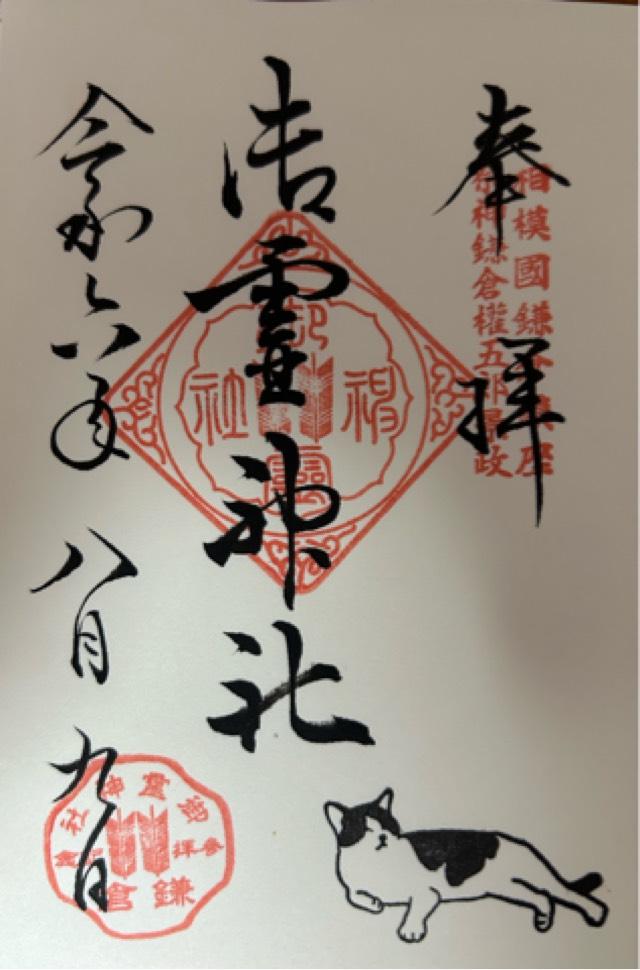 奉拝
相模國鎌倉
祭神鎌倉權五郎景政
御靈神社
御靈神社
令和六年八月九日
御靈神社
参拝記念
鎌倉